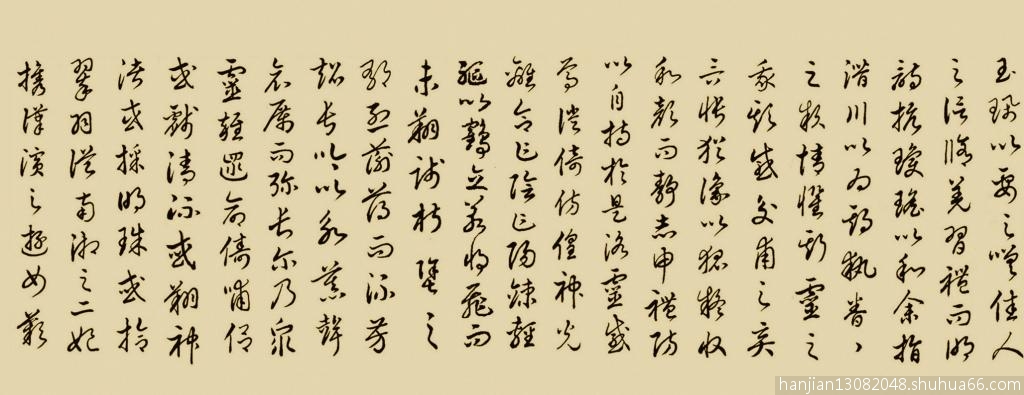 玉珮以要之嗟佳人
之信脩羌習禮而明
詩抗瓊瑤以和余指
潛川以為期執眷々
之款情懼斯靈之
我欺感交甫之棄
言悵猶豫以狐疑收
和顏而靜志申禮防
以自持於是洛靈感
焉徙倚彷徨神光
離合乍陰乍陽竦輕
軀以鶴立若將飛而
未翔踐椒塗之
郁烈蘅薄而流芳
超長吟以永慕聲
哀厲而彌長爾乃衆
靈雜遝命儔嘯侶
或戲清流或翔神
渚或採明珠或拾
翠羽從南湘之二妃
攜漢濱之遊女歎
hanjian13082048.shuhua66.com